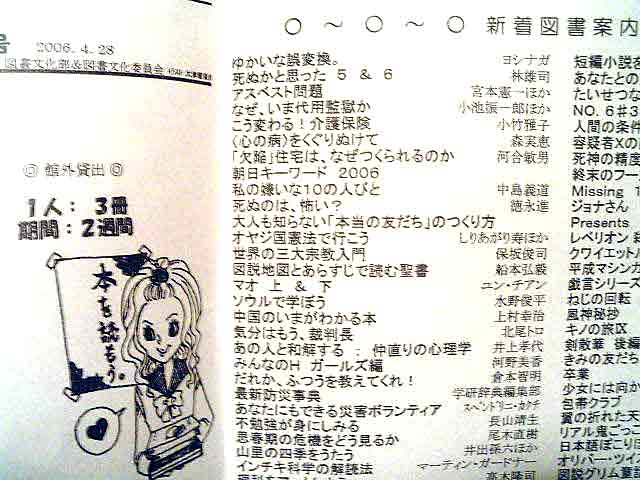 号
2006.4.28
図書文化部&図書文化委員会
◎ 館外貸出 ◎
1人：3冊
期間：2週間
本を読もう。
○ ～ ○ ～ ○ 新着図書案内
ゆかいな誤変換。 ヨシナガ
死ぬかと思った 5 & 6 林雄司
アスベスト問題 宮本憲一ほか
なぜ、いま代用監獄か 小池振一郎ほか
こう変わる！介護保険 小竹雅子
〈心の病〉をくぐりぬけて 森実恵
「欠陥」住宅は、なぜつくられるのか 河合敏男
朝日キーワード 2006
私の嫌いな10の人びと 中島義道
死ぬのは、怖い？ 徳永進
大人も知らない「本当の友だち」のつくり方
オヤジ国憲法で行こう しりあがり寿ほか
世界の三大宗教入門 保坂俊司
図説地図とあらすじで読む聖書 船本弘毅
マオ 上 & 下 ユン・チアン
ソウルで学ぼう 水野俊平
中国のいまがわかる本 上村幸治
気分はもう、裁判長 北尾トロ
あの人と和解する : 仲直りの心理学 井上孝代
みんなのH ガールズ編 河野美香
だれか、ふつうを教えてくれ！ 倉本智明
最新防災事典 学研辞典編集部
あなたにもできる災害ボランティア スベンドリニ・カクチ
不勉強が身にしみる 長山靖生
思春期の危機をどう見るか 尾木直樹
山里の四季をうたう 井出孫六ほか
インチキ科学の解読法 マーティン・ガードナー
短編小説を
あなたとの
たいせつな
NO.6#3
人間の条件
容疑者Xの
死神の精度
終末のフー
Missing
ジョナさん
Presents
レベリオン
クワイエット
平成マシン
戯言シリーズ
ねじの回転
風神秘抄
キノの旅Ⅸ
剣敵華 後編
きみの友だち
卒業
少女には向か
包帯クラブ
翼の折れた天
リアル鬼ごっこ
日本語ぽこりぽ
オリバー・ツイス
図説グリム童話